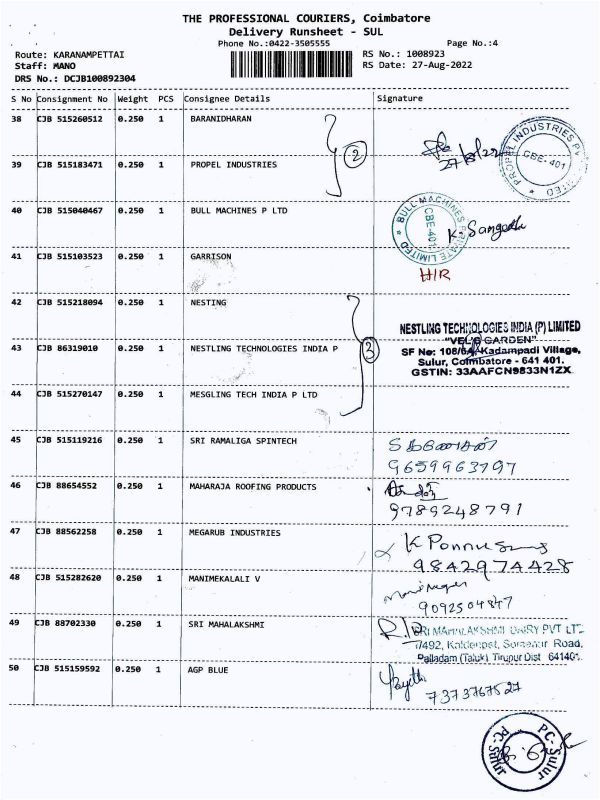 THE PROFESSIONAL COURIERS, Coimbatore
Delivery Runsheet - SUL
Phone No.:0422-3505555 Page No.:4
Route: KARANAMPETTAI RS No.: 1008923
Staff: MANO RS Date: 27-Aug-2022
DRS No.: DCJB100892304
S No Consignment No Weight PCS Consignee Details Signature
38 CJB 515260512 0.250 1 BARANIDHARAN
2 27/8/22 PROPEL INDUSTRIES CBE-401
39 CJB 515183471 0.250 1 PROPEL INDUSTRIES
40 CJB 515040467 0.250 1 BULL MACHINES P LTD
BULL MACHINES PRIVATE LIMITED CBE-401 K. Sangeetha
41 CJB 515103523 0.250 1 GARRISON H/R
42 CJB 515218094 0.250 1 NESTING
NESTLING TECHNOLOGIES INDIA (P) LIMITED
"VEL'S GARDEN"
43 CJB 86319010 0.250 1 NESTLING TECHNOLOGIES INDIA P 3
Kadampadi Village,
Sulur, Coimbatore - 641 401.
GSTIN: 33AAFCN9833N1ZX
44 CJB 515270147 0.250 1 MESGLING TECH INDIA P LTD
45 CJB 515119216 0.250 1 SRI RAMALIGA SPINTECH
9659963797
46 CJB 88654552 0.250 1 MAHARAJA ROOFING PRODUCTS
9789248791
47 CJB 88562258 0.250 1 MEGARUB INDUSTRIES
9842974428
48 CJB 515282620 0.250 1 MANIMEKALALI V
9092504847
49 CJB 88702330 0.250 1 SRI MAHALAKSHMI
SRI MAHALAKSHMI DAIRY PVT LT
Road,
Palladam (Taluk) Tirupur Dist 641401.
50 CJB 515159592 0.250 1 AGP BLUE
7373767527
PC-Sulur PC-Sulur